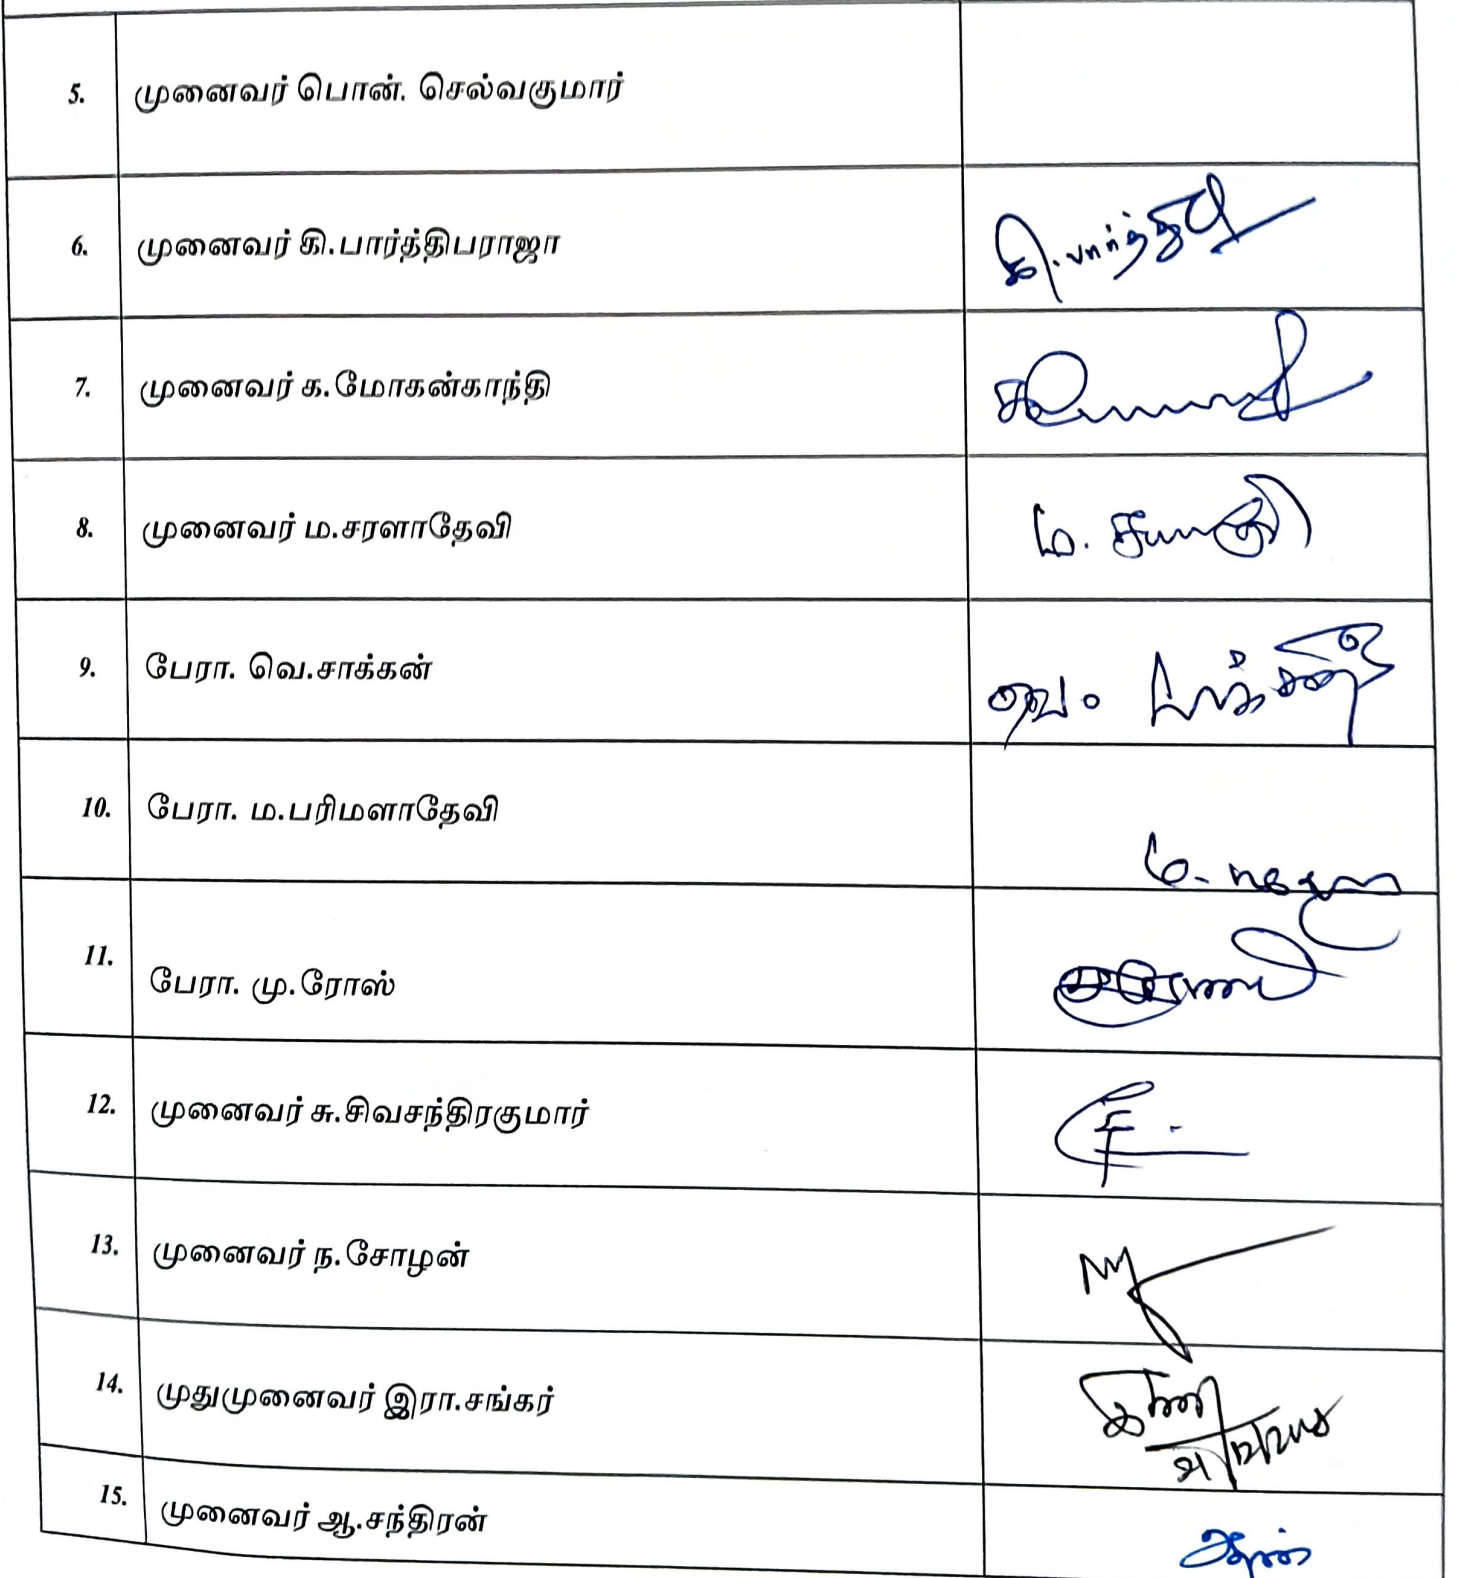 5. முனைவர் பொன். செல்வகுமார்
6. முனைவர் கி.பார்த்திபராஜா
7. முனைவர் க.மோகன்காந்தி
8. முனைவர் ம.சரளாதேவி
9. பேரா. வெ.சாக்கன்
10. பேரா. ம.பரிமளாதேவி
11. பேரா. மு.ரோஸ்
12. முனைவர் சு.சிவசந்திரகுமார்
13. முனைவர் ந.சோழன்
14. முதுமுனைவர் இரா.சங்கர்
15. முனைவர் ஆ.சந்திரன்